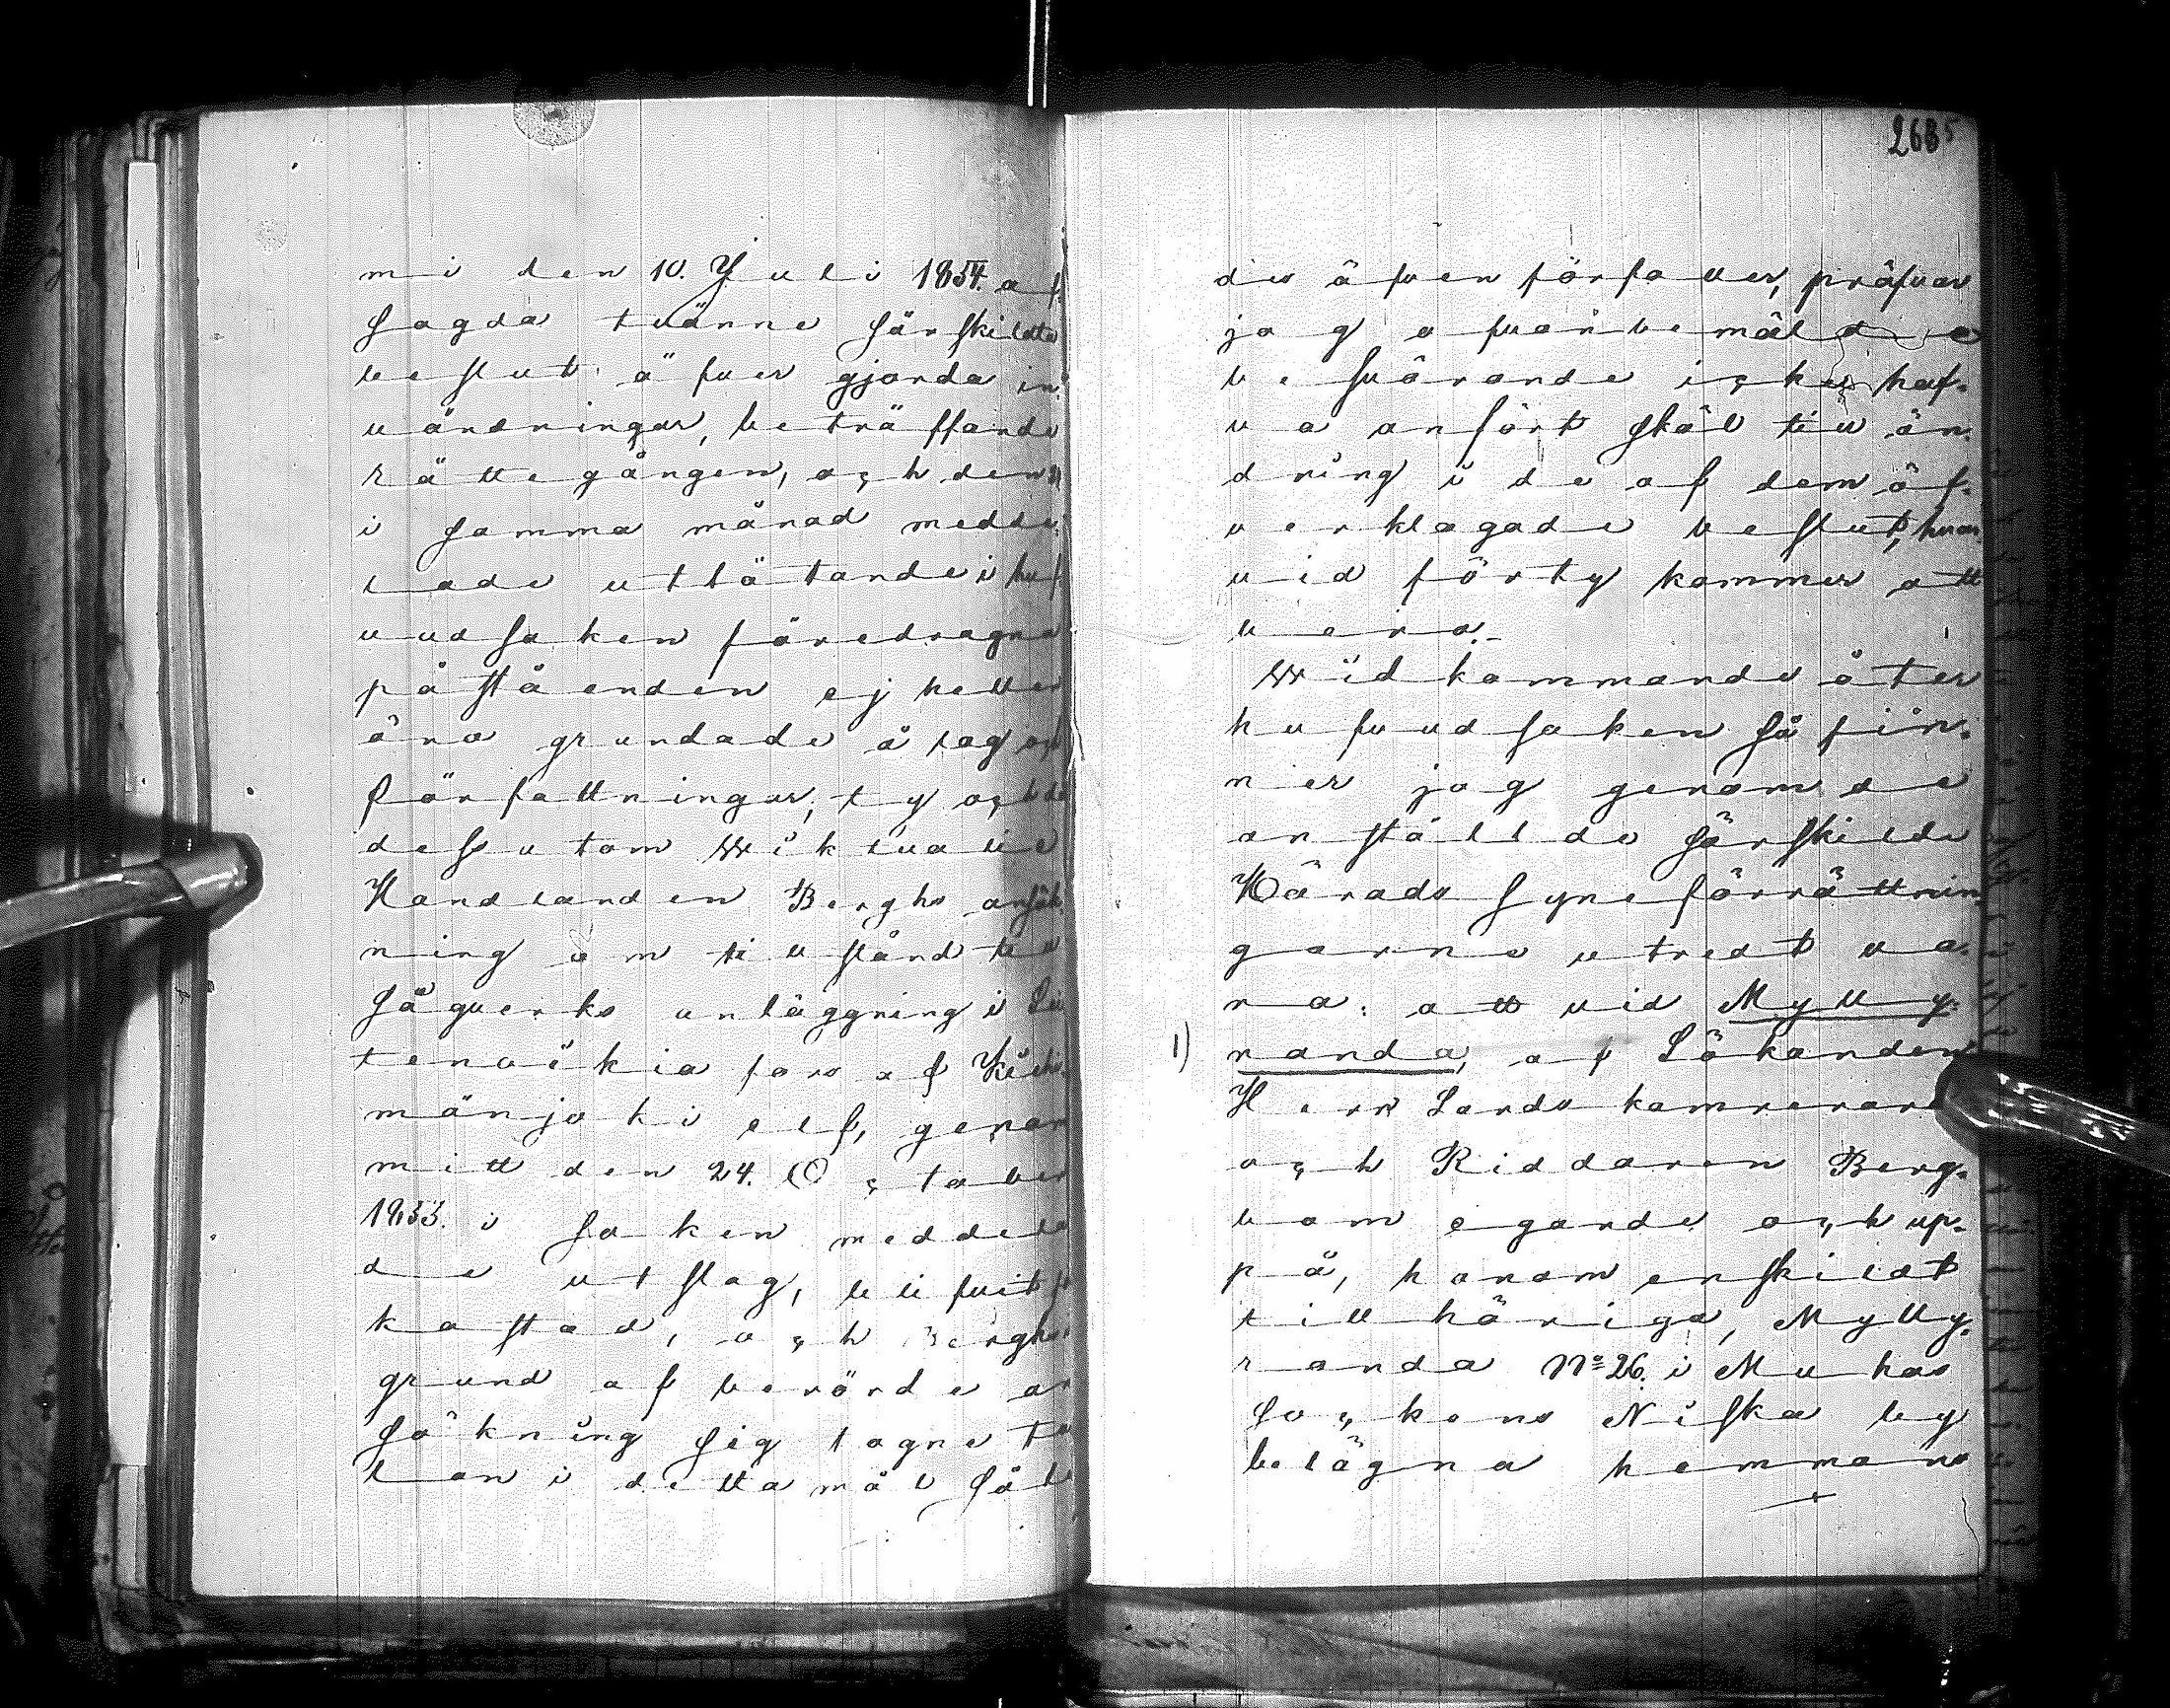 mi den 10. Juli 1854. af-
sagda tvänne särskildta
beslut öfver gjorda in-
vändningar, beträffande
rättegången, och den
i samma månad medde-
lade utlåtande i huf-
vudsaken föredragna
påståenden ej heller
äro grundade å lag och
författningar, ty och då
dessutom Wiktualie
Handlanden Berghs ansök-
ning om tillstånd till
sågverks anläggning i
tenaikia fors af Kiehi-
mänjoki elf, genom
mitt den 24. October
1853. i saken meddela-
de utslag, blifvit för-
kastad, och Berghs i
grund af berörde an-
sökning sig tagne ta-
lan i detta mål såle-
des äfven förfaller, pröfvar
jag ofvanbemälde
besvärande icke haf-
va anfört skäl till än-
dring i de af dem öf-
verklagade beslut, hvar-
vid förty kommer att
bero.
Widkommande åter
hufvudsaken så fin-
ner jag genom de
anställde särskilde
Härads syneförrättnin-
garne utredt va-
ra: att vid Mylly-
1) randa, af Sökanden
Herr Lands kamreraren
och Riddaren Berg-
bom egande och up-
på, honom enskildt
tillhöriga, Mylly-
randa No 26. i Muhos
Sockens Niska by
belägna hemmans
268